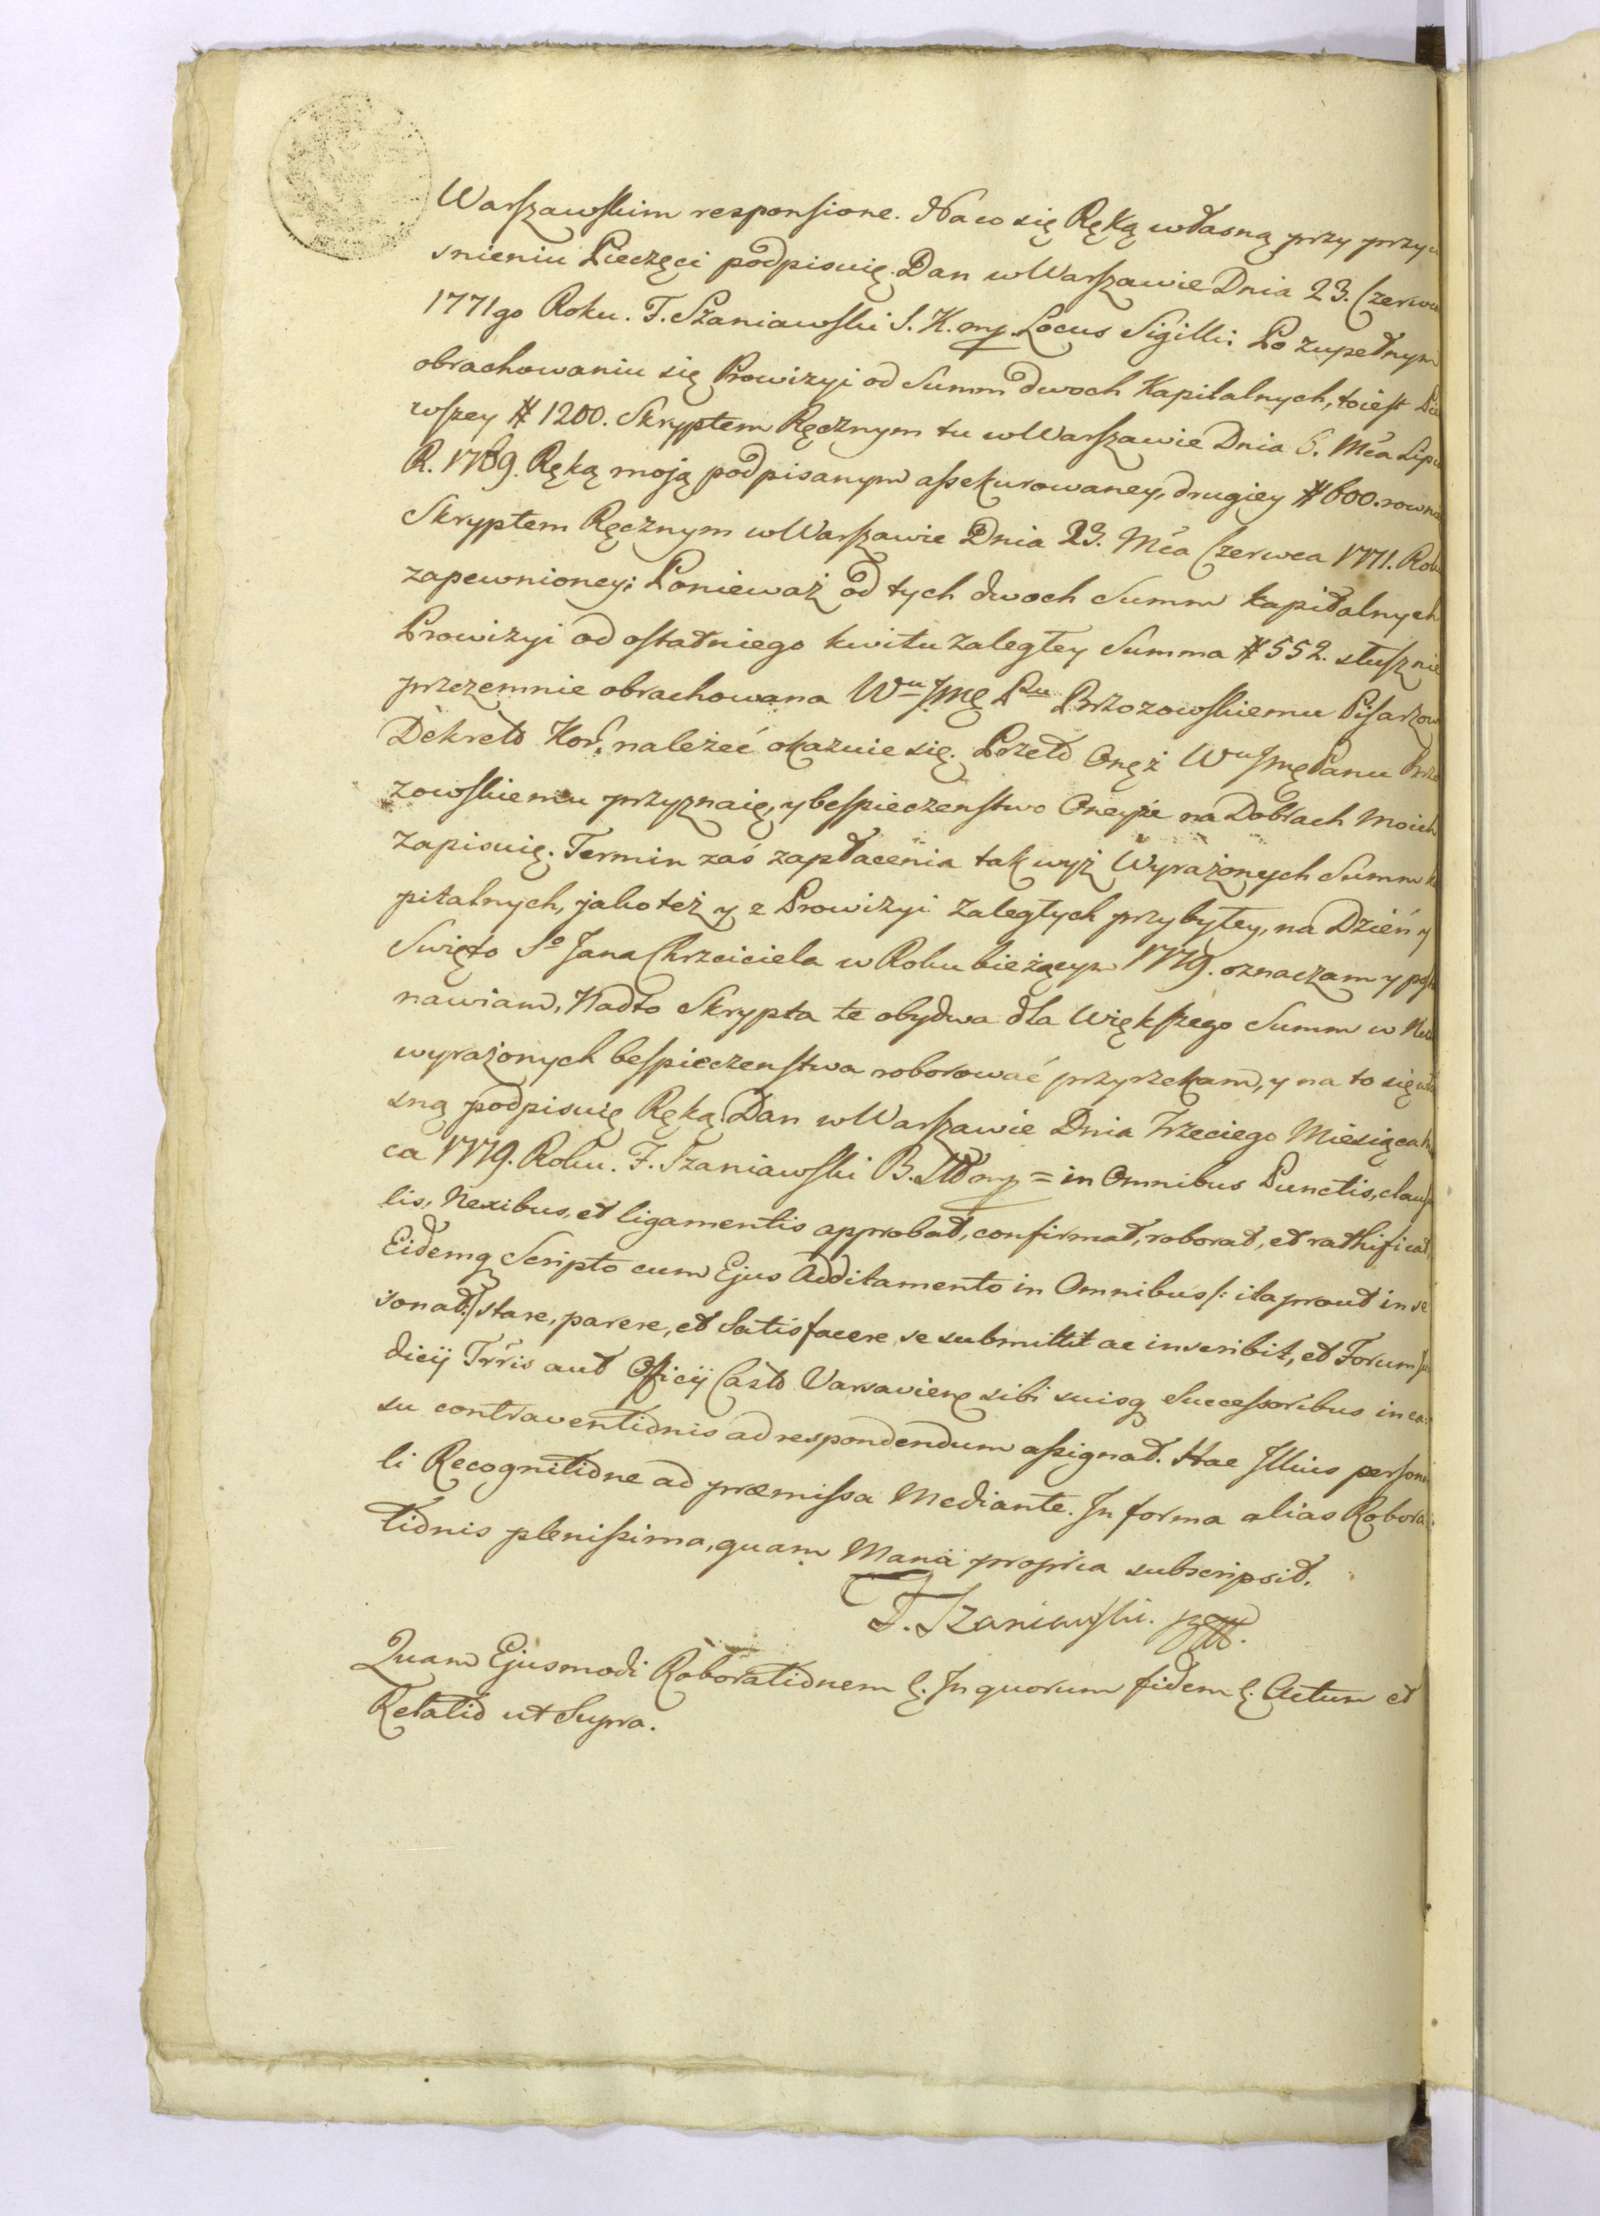 Warszawskim responsione. Na co się Ręką własną przy przyci
snieniu Pieczęci podpisuię. Dan w Warszawie Dnia 23. Czerwca
1771go Roku. F. Szaniawski S. K. mp. Locus Sigilli: Po zupełnym
obrachowaniu się Prowizyi od Summ dwoch Kapitalnych, to iest Pie
wszey # 1200. Skryptem Ręcznym tu w Warszawie Dnia 6. Mca Lipca
R. 1769. Ręką moją podpisanym assekurowaney, drugiey # 600. rownie
Skryptem Ręcznym w Warszawie Dnia 23. Mca Czerwca 1771. Roku
zapewnioney; Ponieważ od tych dwoch Summ kapitalnych
Prowizyi od ostatniego kwitu zaległey Summa # 552. słusznie
przezemnie obrachowana Wu Jmę Pu Brzozowskiemu Pisarzow
Dekreto Kor. należeć okazuie się. Przeto Onęż Wu Jmę Panu Brzo
zowskiemu przyznaię, y bespieczenstwo Oneyże na Dobrach Moich
zapisuię. Termin zaś zapłacenia tak wyż Wyrażonych Summ ka
pitalnych, jako też y z Prowizyi zaległych przybyłey, na Dzień y
Swięto So Jana Chrzciciela w Roku bieżącym 1779. oznaczam y posta
nawiam, Nadto Skrypta te obydwa dla Większego Summ w
wyrażonych bespieczenstwa roborować przyrzekam, y na to się wła
sną podpisuię Ręką. Dan w Warszawie Dnia Trzeciego Miesiąca
ca 1779. Roku. F. Szaniawski B. mp = in Omnibus Punctis, clausu
lis, Nexibus, et ligamentis approbat, confirmat, roborat, et rathificat,
Eidemq Scripto cum Ejus Additamento in Omnibus /: ita prout in se
sonat :/ stare, parere, et Satisfacere se submittit ac inscribit, et Forum Ju
dicij Trris aut Officij Castr Varsavien sibi suisq Successoribus in ca:
su contraventionis ad respondendum assignat. Hac Illius persona
li Recognitione ad præmissa Mediante. In forma alias Robora:
tionis plenissima, quam Manu propria subscripsit.
F. Szaniawski.
Quam Ejusmodi Roborationem &. In quorum fidem &. Actum et
Relatio ut Supra.